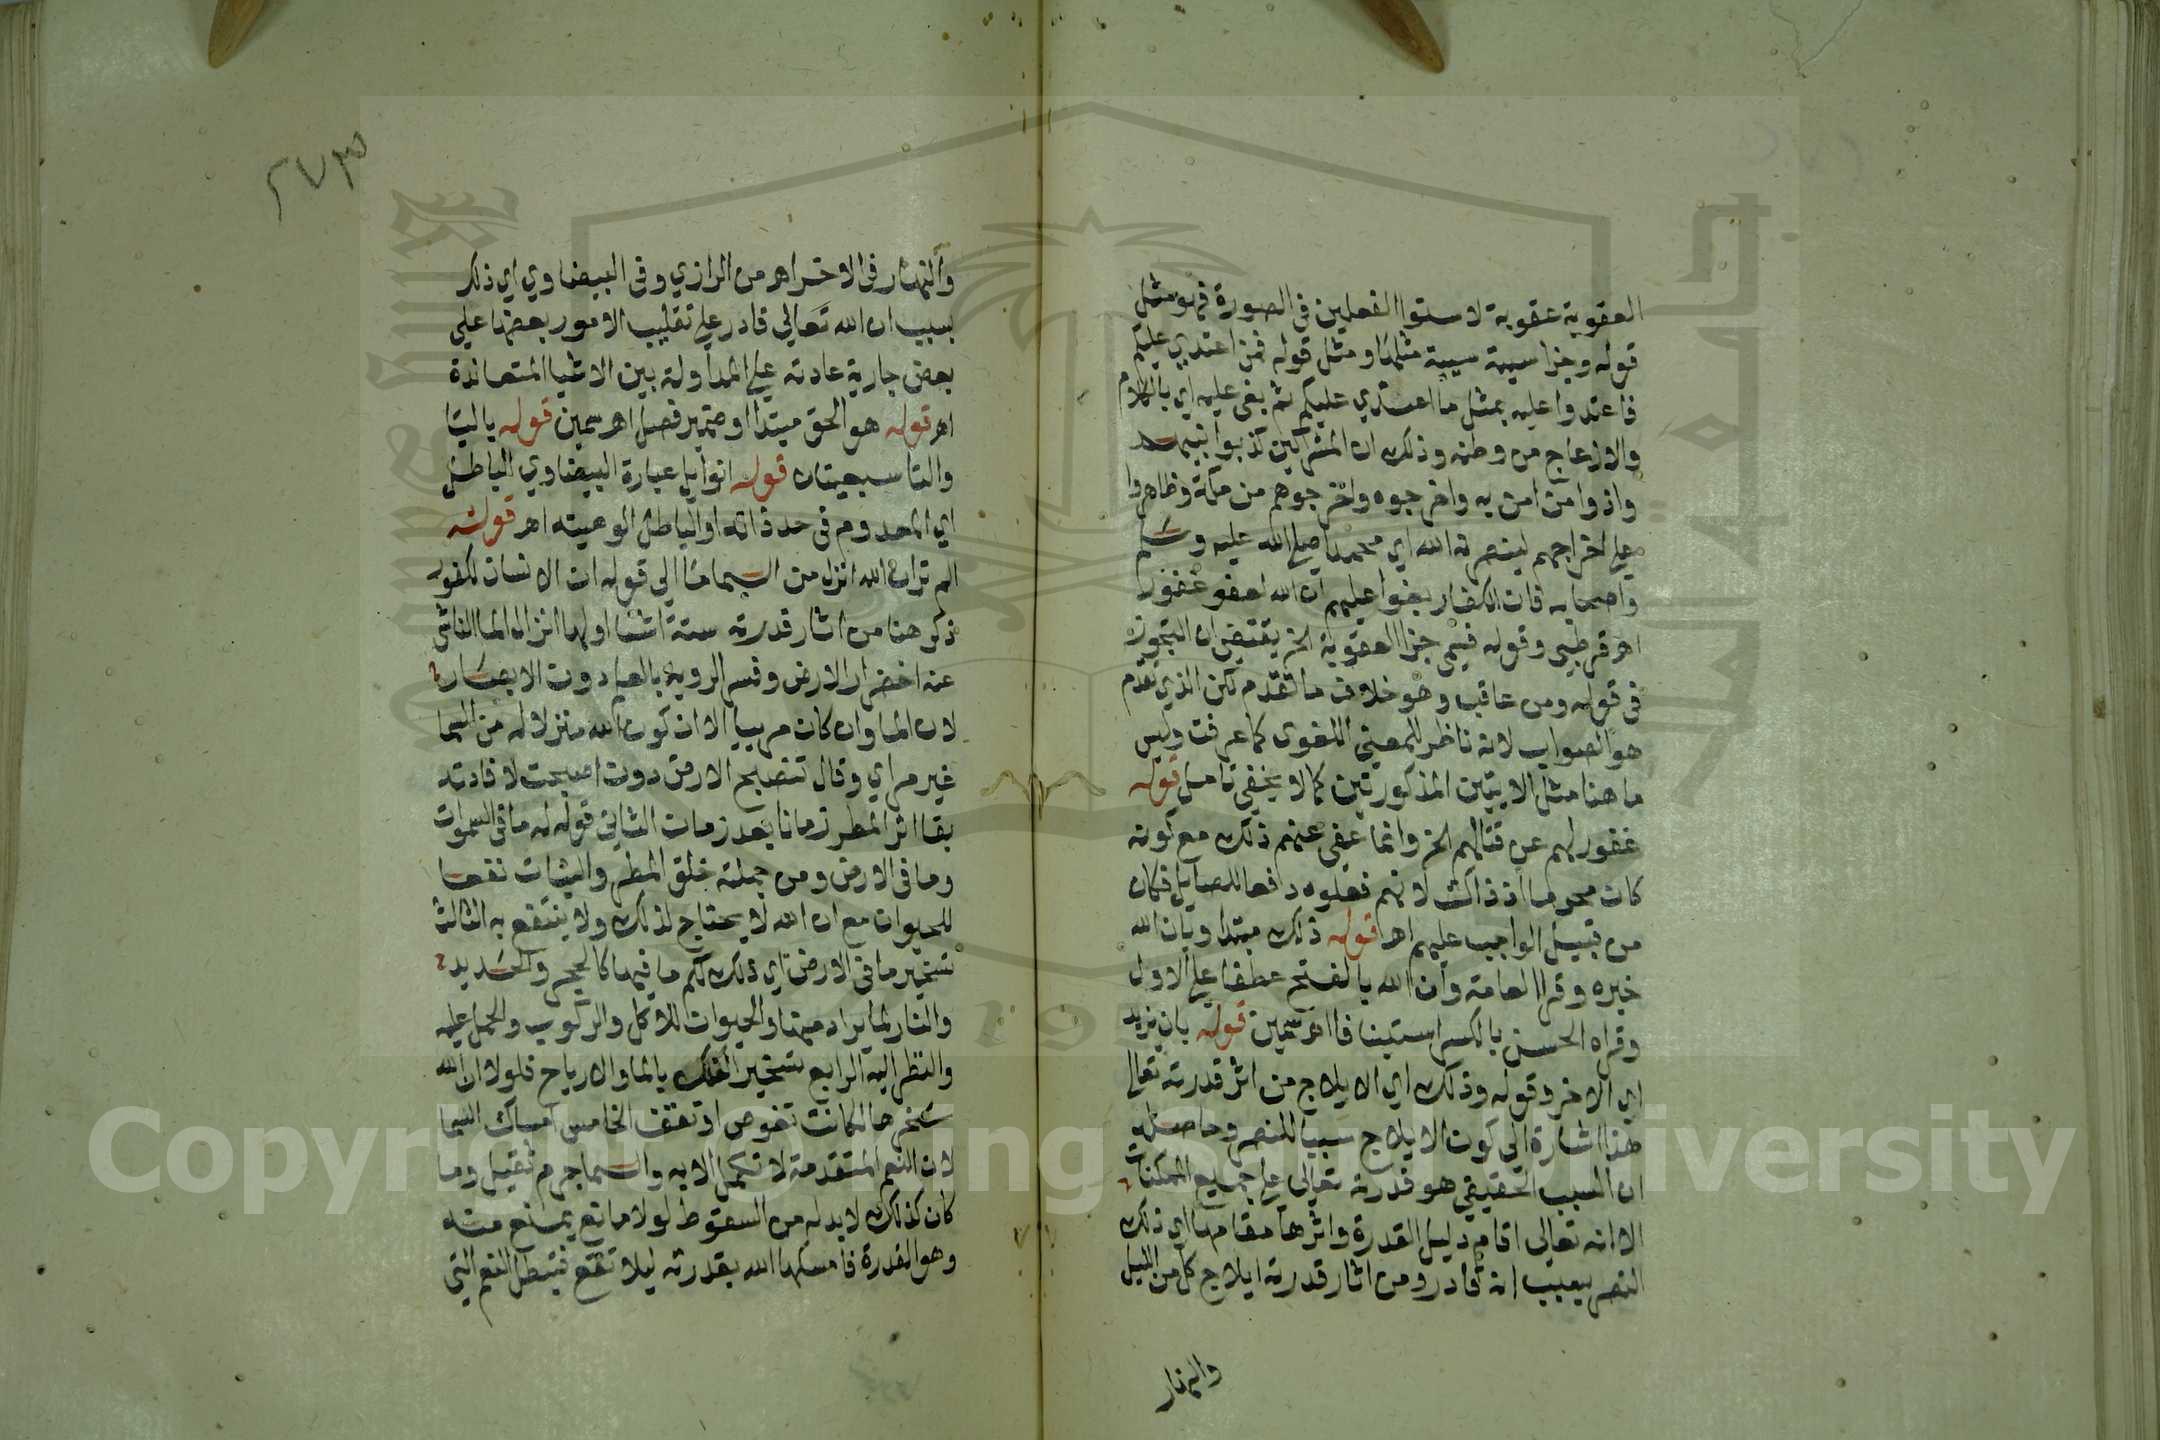 العقوبة عقوبة لاستوا الفعلين في الصورة فهو مثل
قوله وجزا سيية سيية مثلها ومثل قوله فمن اعتدي عليكم
فاعتدوا عليه بمثل ما اعتدي عليكم ثم بغي عليه اي بالكلام
والازعاج من وطنه وذلك ان المشركين كذبوا نبيهم
واذوا من امن به واخرجوه واخرجوهم من مكة وظاهروا
علي اخراجهم لينصرنه الله اي محمدا صلي الله عليه وسلم
واصحابه فان الكفار بغوا عليهم ان الله لعفو غفور
اهـ قرطبي وقوله فيمي جزا العقوبة الخ يقتضي ان التجوز
في قوله ومن عاقب وهو خلاف ما تقدم لكن الذي تقدم
هو الصواب لانه ناظر للمعني اللغوي كما عرفت وليس
ما هنا مثل الايتين المذكورتين كما لا يخفي تامل قوله
غفور لهم عن قتالهم الخ وانما عفي عنهم ذلك مع كونه
كان محرما اذ ذاك لانهم فعلوه دفعا للصايل فكان
من قبيل الواجب عليهم اهـ قوله ذلك مبتدا وبان الله
خبره وقرا العامة وان الله بالفتح عطفا علي الاول
وقراه الحسن بالكسر استينافا اهـ سمين قوله بان يزيد
اي الاخر وقوله وذلك اي الايلاج من اثر قدرته تعالي
هذا اشارة الي كون الايلاج سببا للنصر وحاصله
ان السبب الحقيقي هو قدرة تعالي علي جميع الممكنات
الا انه تعالي اقام دليل القدرة واثرها مقامها اي ذلك
النصر بسبب انه قادر ومن اثار قدرته ايلاج كل من الليل
والنهار
٢٧٣
والنهار في الاخر اهـ من الرازي وفي البيضاوي اي ذلك
بسبب ان الله تعالي قادر علي تقليب الامور بعضها علي
بعض جارية عادته علي المداولة بين الاشيا المتعاندة
اهـ قوله هو الحق مبتدا او ضمير فصل اهـ سمين قوله باليا
والتا سبعيتان قوله الزايل عبارة البيضاوي الباطل
اي المعدوم في حد ذاته او الباطل الوهيته اهـ قوله
الم تر ان الله انزل من السما ما الي قوله ان الانسان لكفور
ذكر هنا من اثار قدرته ستة اشيا اولها انزال الما الناشي
عنه اخضرار الارض وفسر الروية بالعلم دون الابصار
لان الما وان كان مرييا الا ان كون الله منزلا له من السما
غير مراي وقال تتصبح الارض دون اصبحت لافادته
بقا اثر المطر زمانا بعد زمان الثاني قوله له ما في السموات
وما في الارض ومن جملته خلق المطر والنبات نفعا
للحيوان مع ان الله لا يحتاج لذلك ولا ينتفع به الثالث
تسخير ما في الارض اي ذلل لكم ما فيها كالحجر والحديد
والنار لما يراد منها والحيوان للاكل والركوب والحمل عليه
والنظر اليه الرابع تسخير الفلك بالما والارياح فلولا ان الله
سخرها لكانت تغوص او تقف الخامس امساك السما
لان النعم المتقدمة لا تكمل الا به والسما جرم ثقيل وما
كان كذلك لا بد له من السقوط لولا مانع يمنع منه
وهو القدرة فامسكها الله بقدرته ليلا تقع فتبطل النعم التي
Copyright © King Saud University